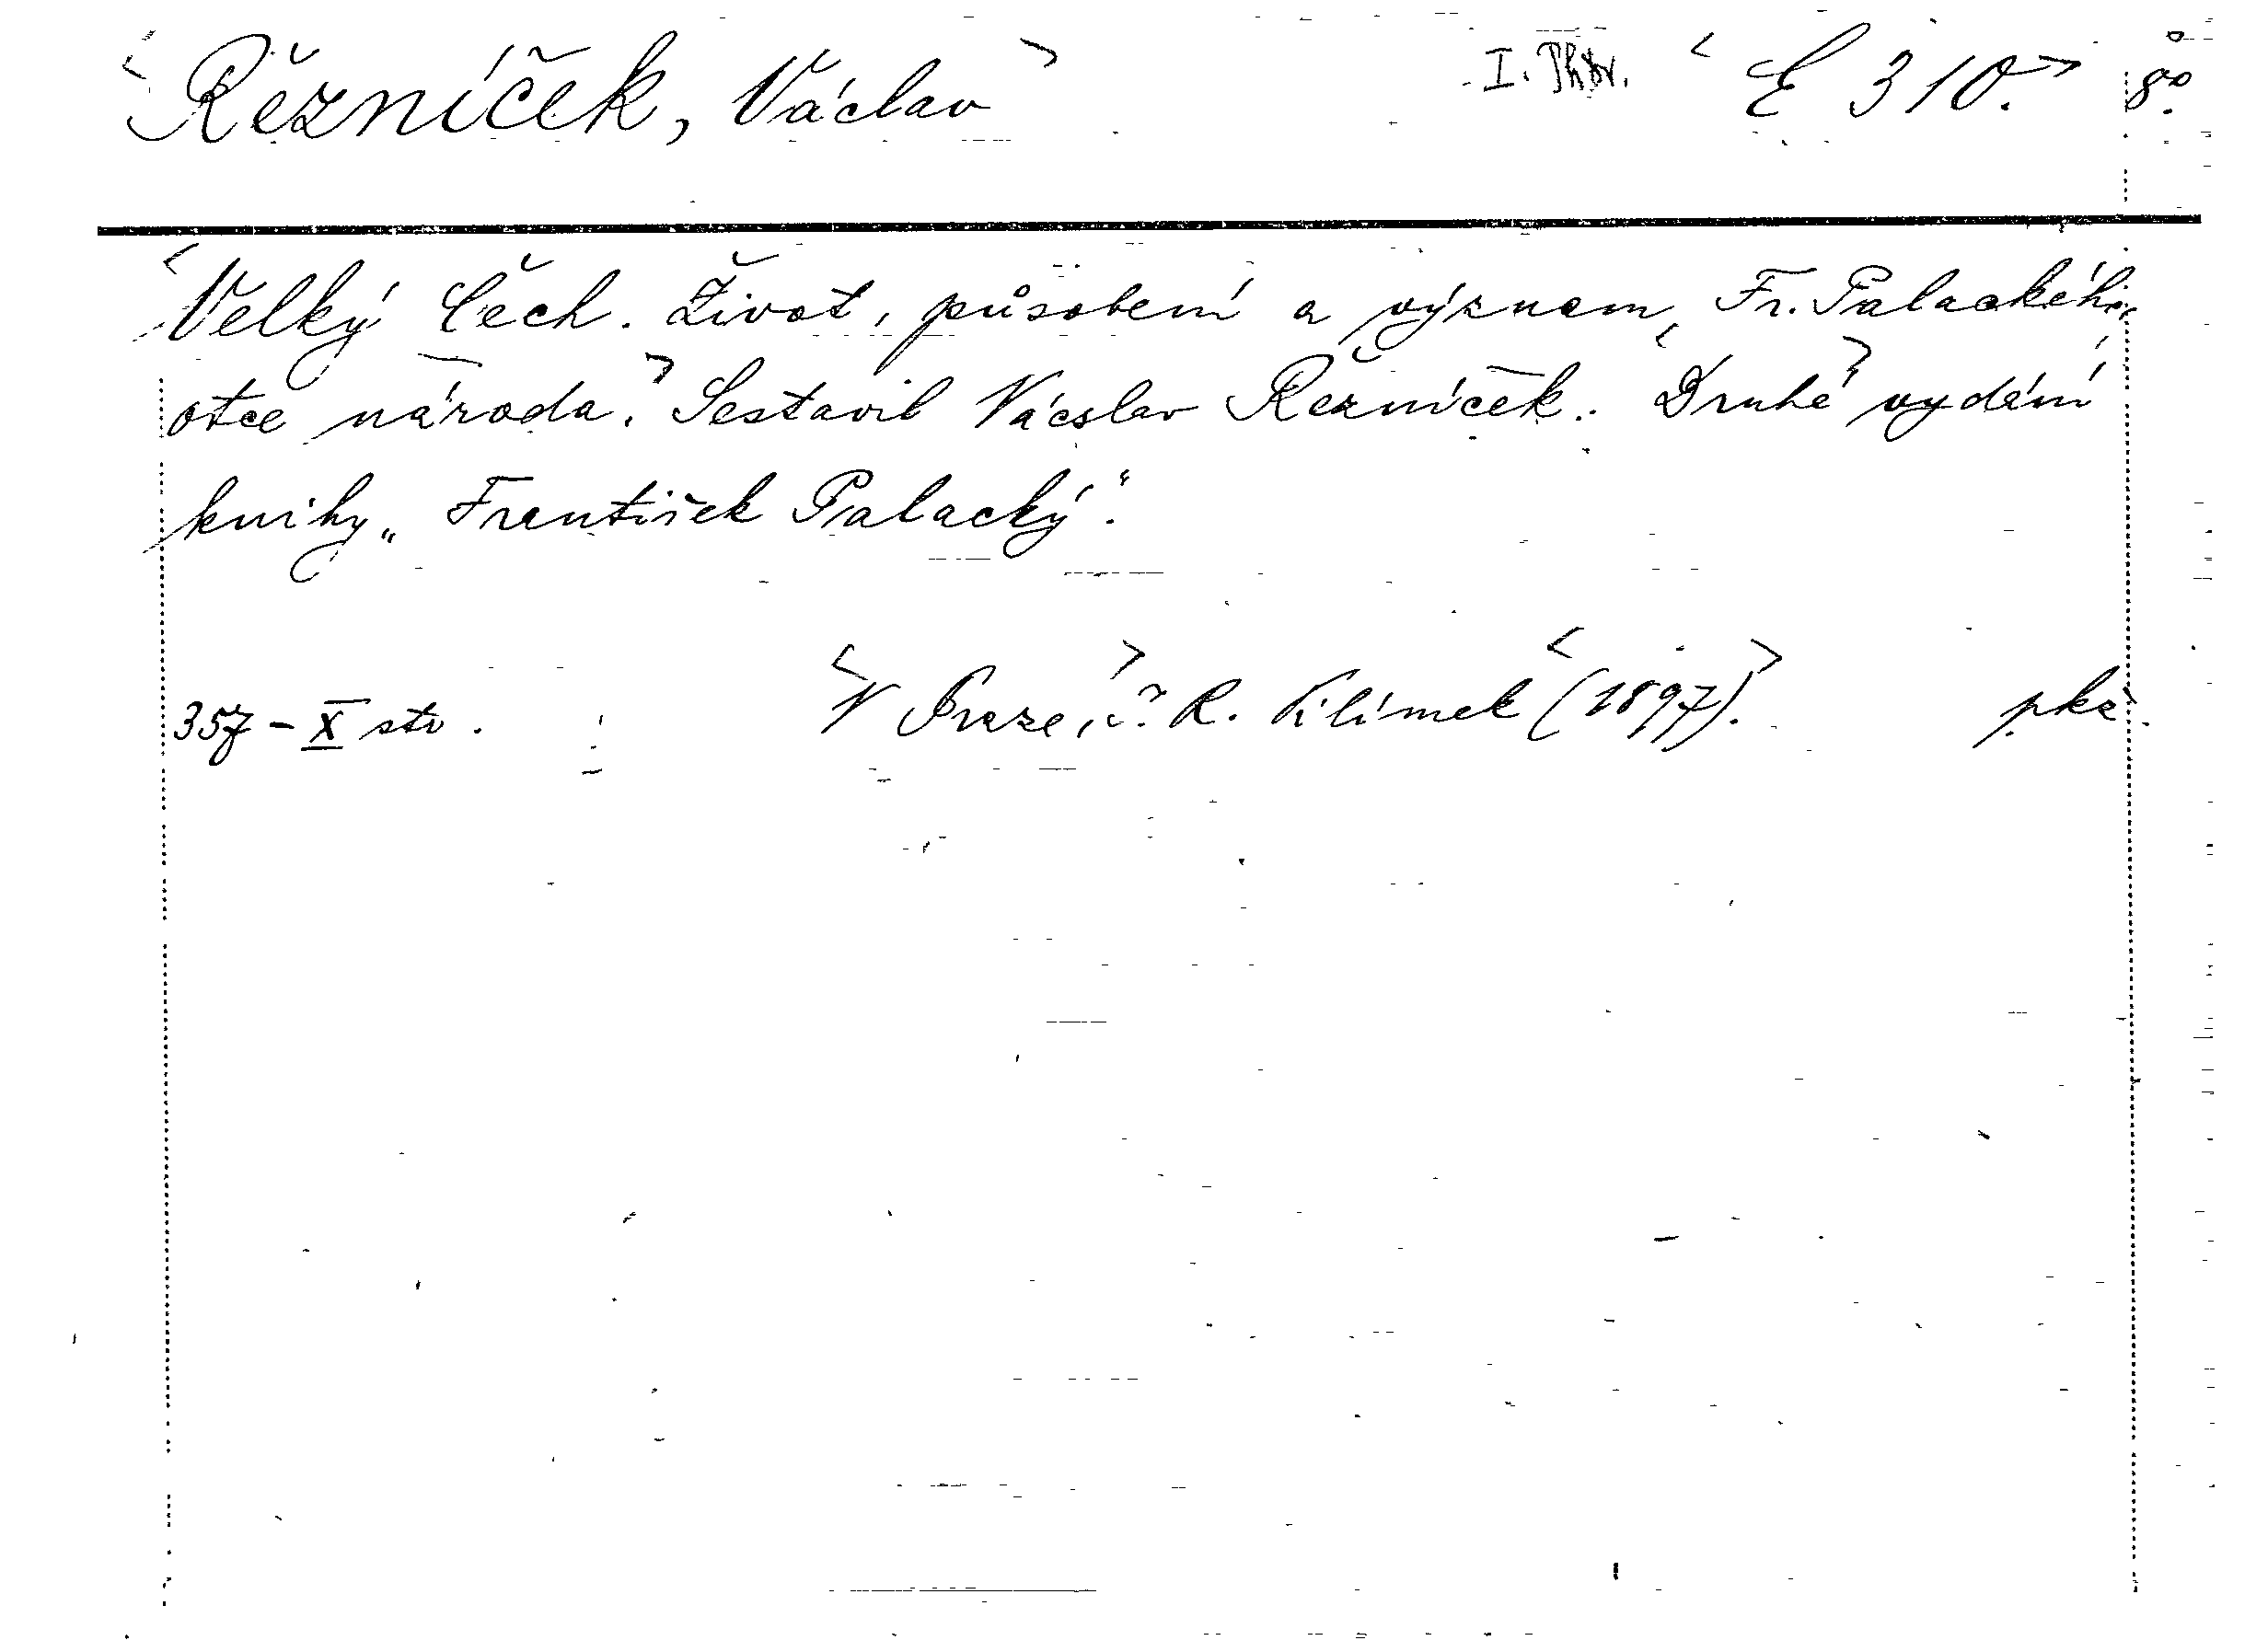 Řezníček, Václav I. E 310. 8°.
Velký Čech. Život, působení a význam Fr. Palackého,
otce národa. Sestavil Vácslav Řezníček. Druhé vydání
knihy „František Palacký".
357 - X str. V Praze, R. Vilímek (1897).